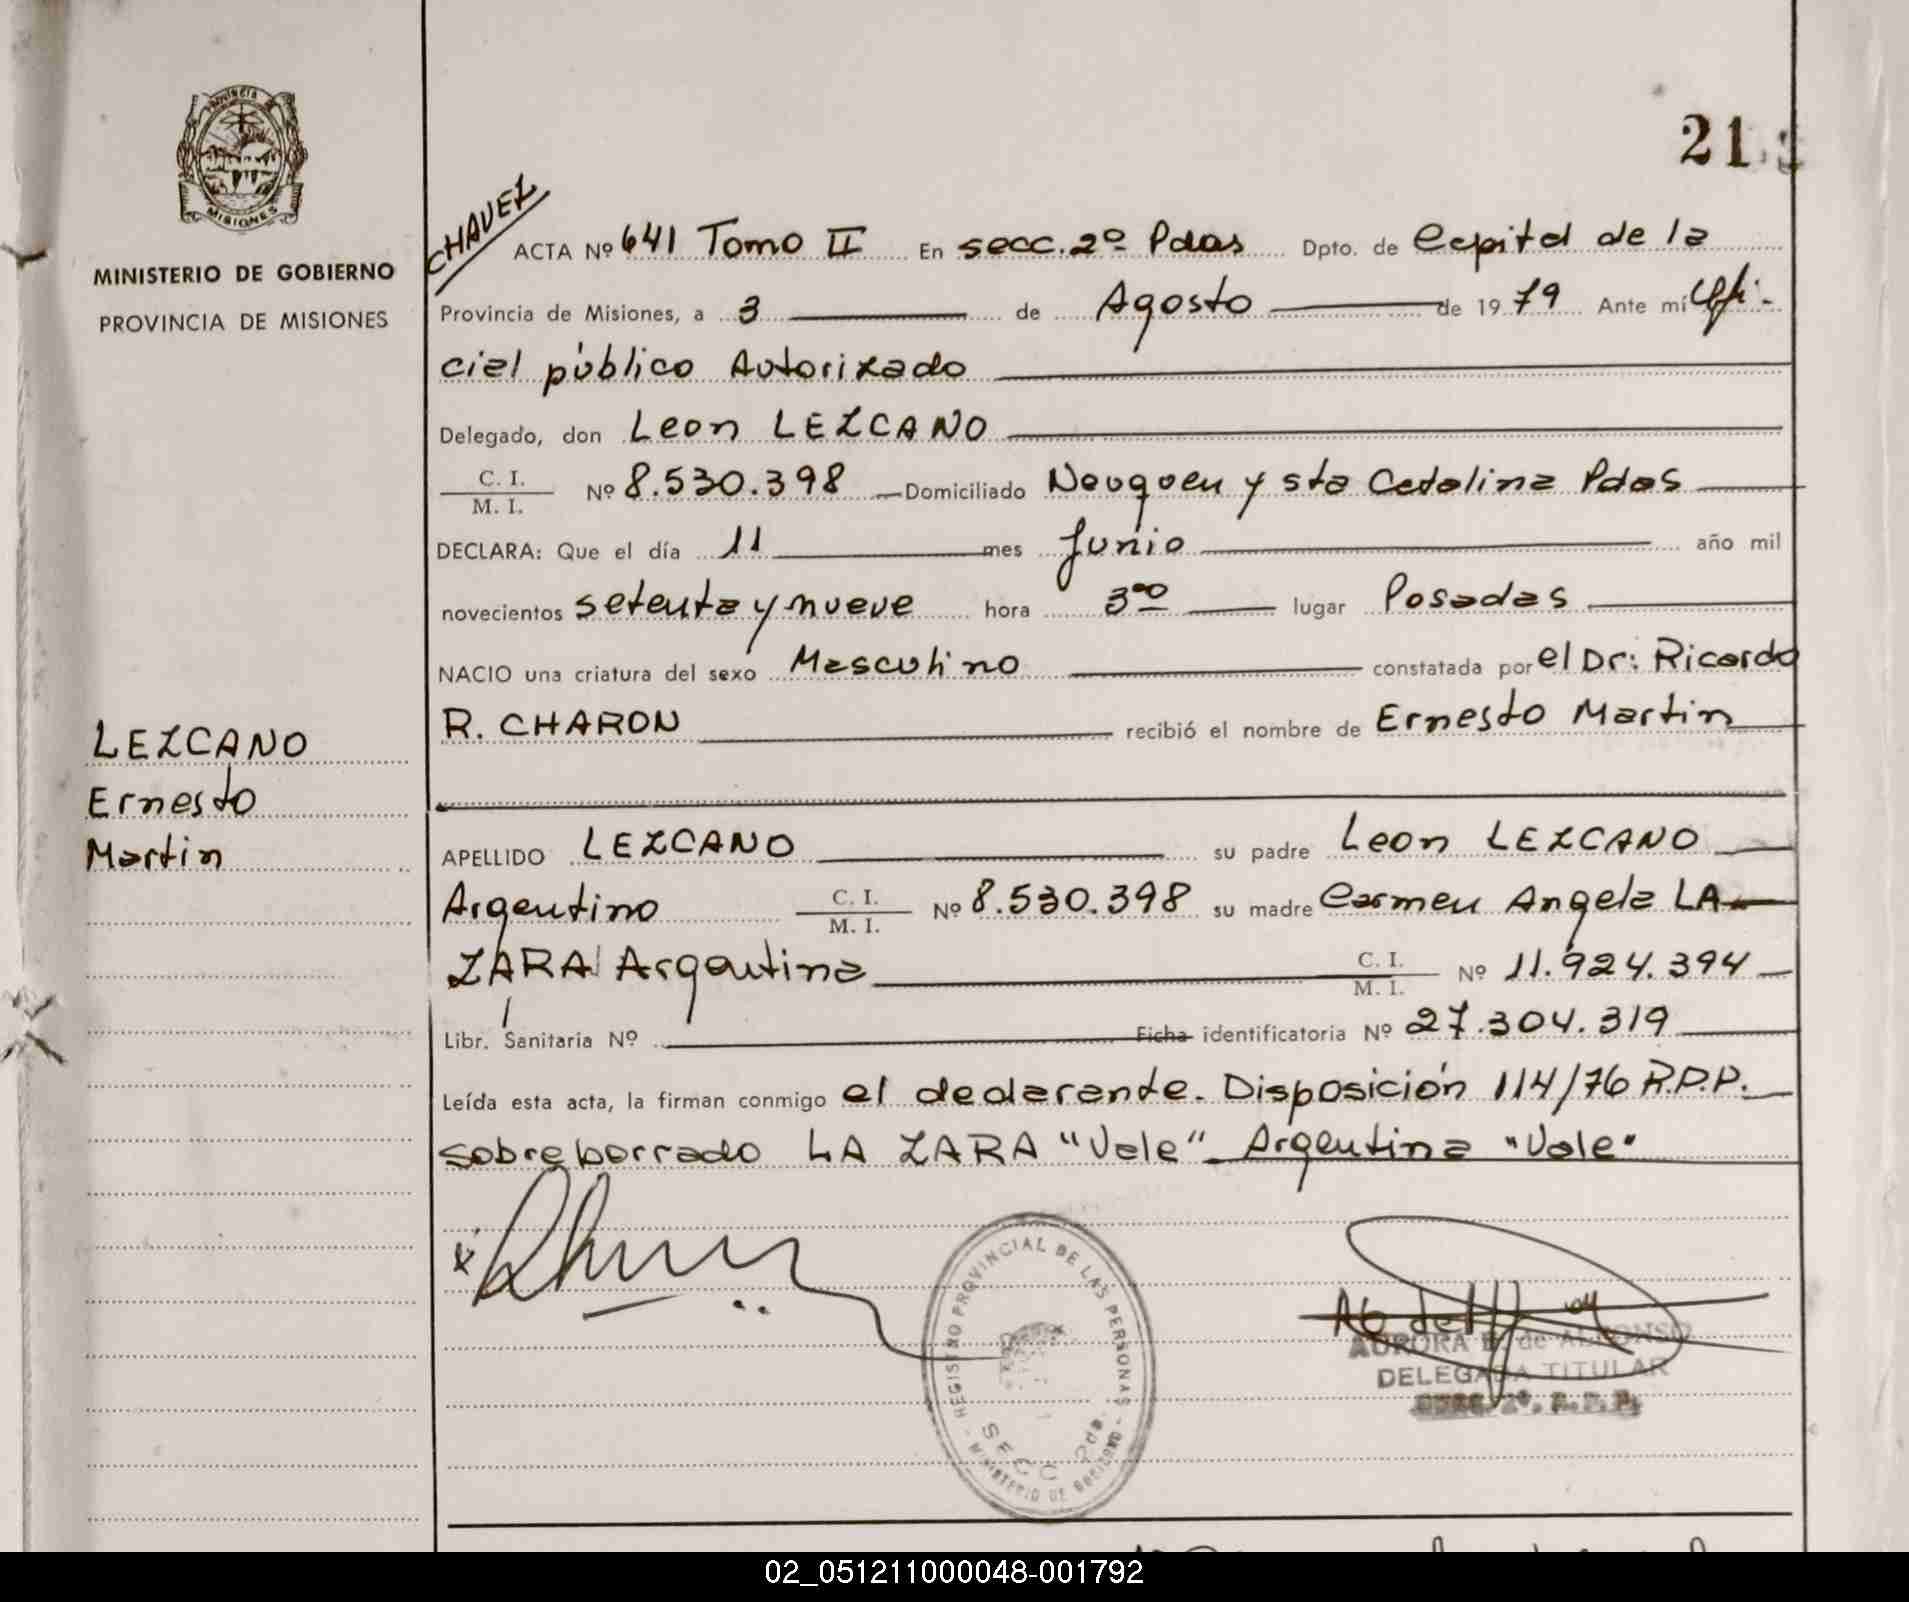 PROVINCIA DE
MISIONES
MINISTERIO DE GOBIERNO
PROVINCIA DE MISIONES
LEZCANO
Ernesto
Martin
21
CHAVEZ
ACTA Nº 641 Tomo II En secc. 2º Pdas Dpto. de Capital de la
Provincia de Misiones, a 3 de Agosto de 1979 Ante mí Ofi-
cial público Autorizado
Delegado, don Leon LEZCANO
C. I.
M. I. Nº 8.530.398 Domiciliado Neuquen y sta Catalina Pdas
DECLARA: Que el día 11 mes Junio año mil
novecientos setenta y nueve hora 3ºº lugar Posadas
NACIO una criatura del sexo Masculino constatada por el Dr: Ricardo
R. CHARON recibió el nombre de Ernesto Martin
APELLIDO LEZCANO su padre Leon LEZCANO
Argentino C. I. M. I. Nº 8.530.398 su madre Carmen Angela LA
ZARA Argentina C. I. M. I. Nº 11.924.394
Libr. Sanitaria Nº Ficha identificatoria Nº 27.304.319
Leída esta acta, la firman conmigo el declarante. Disposición 114/76 R.P.P.
sobreborrado LA ZARA "Vale" Argentina "Vale"
REGISTRO PROVINCIAL DE LAS PERSONAS - MINISTERIO DE GOBIERNO -
SECC 2da.
AURORA de ALFONSO
DELEGADA TITULAR
SECC. 2º. R.P.P.
02_051211000048-001792